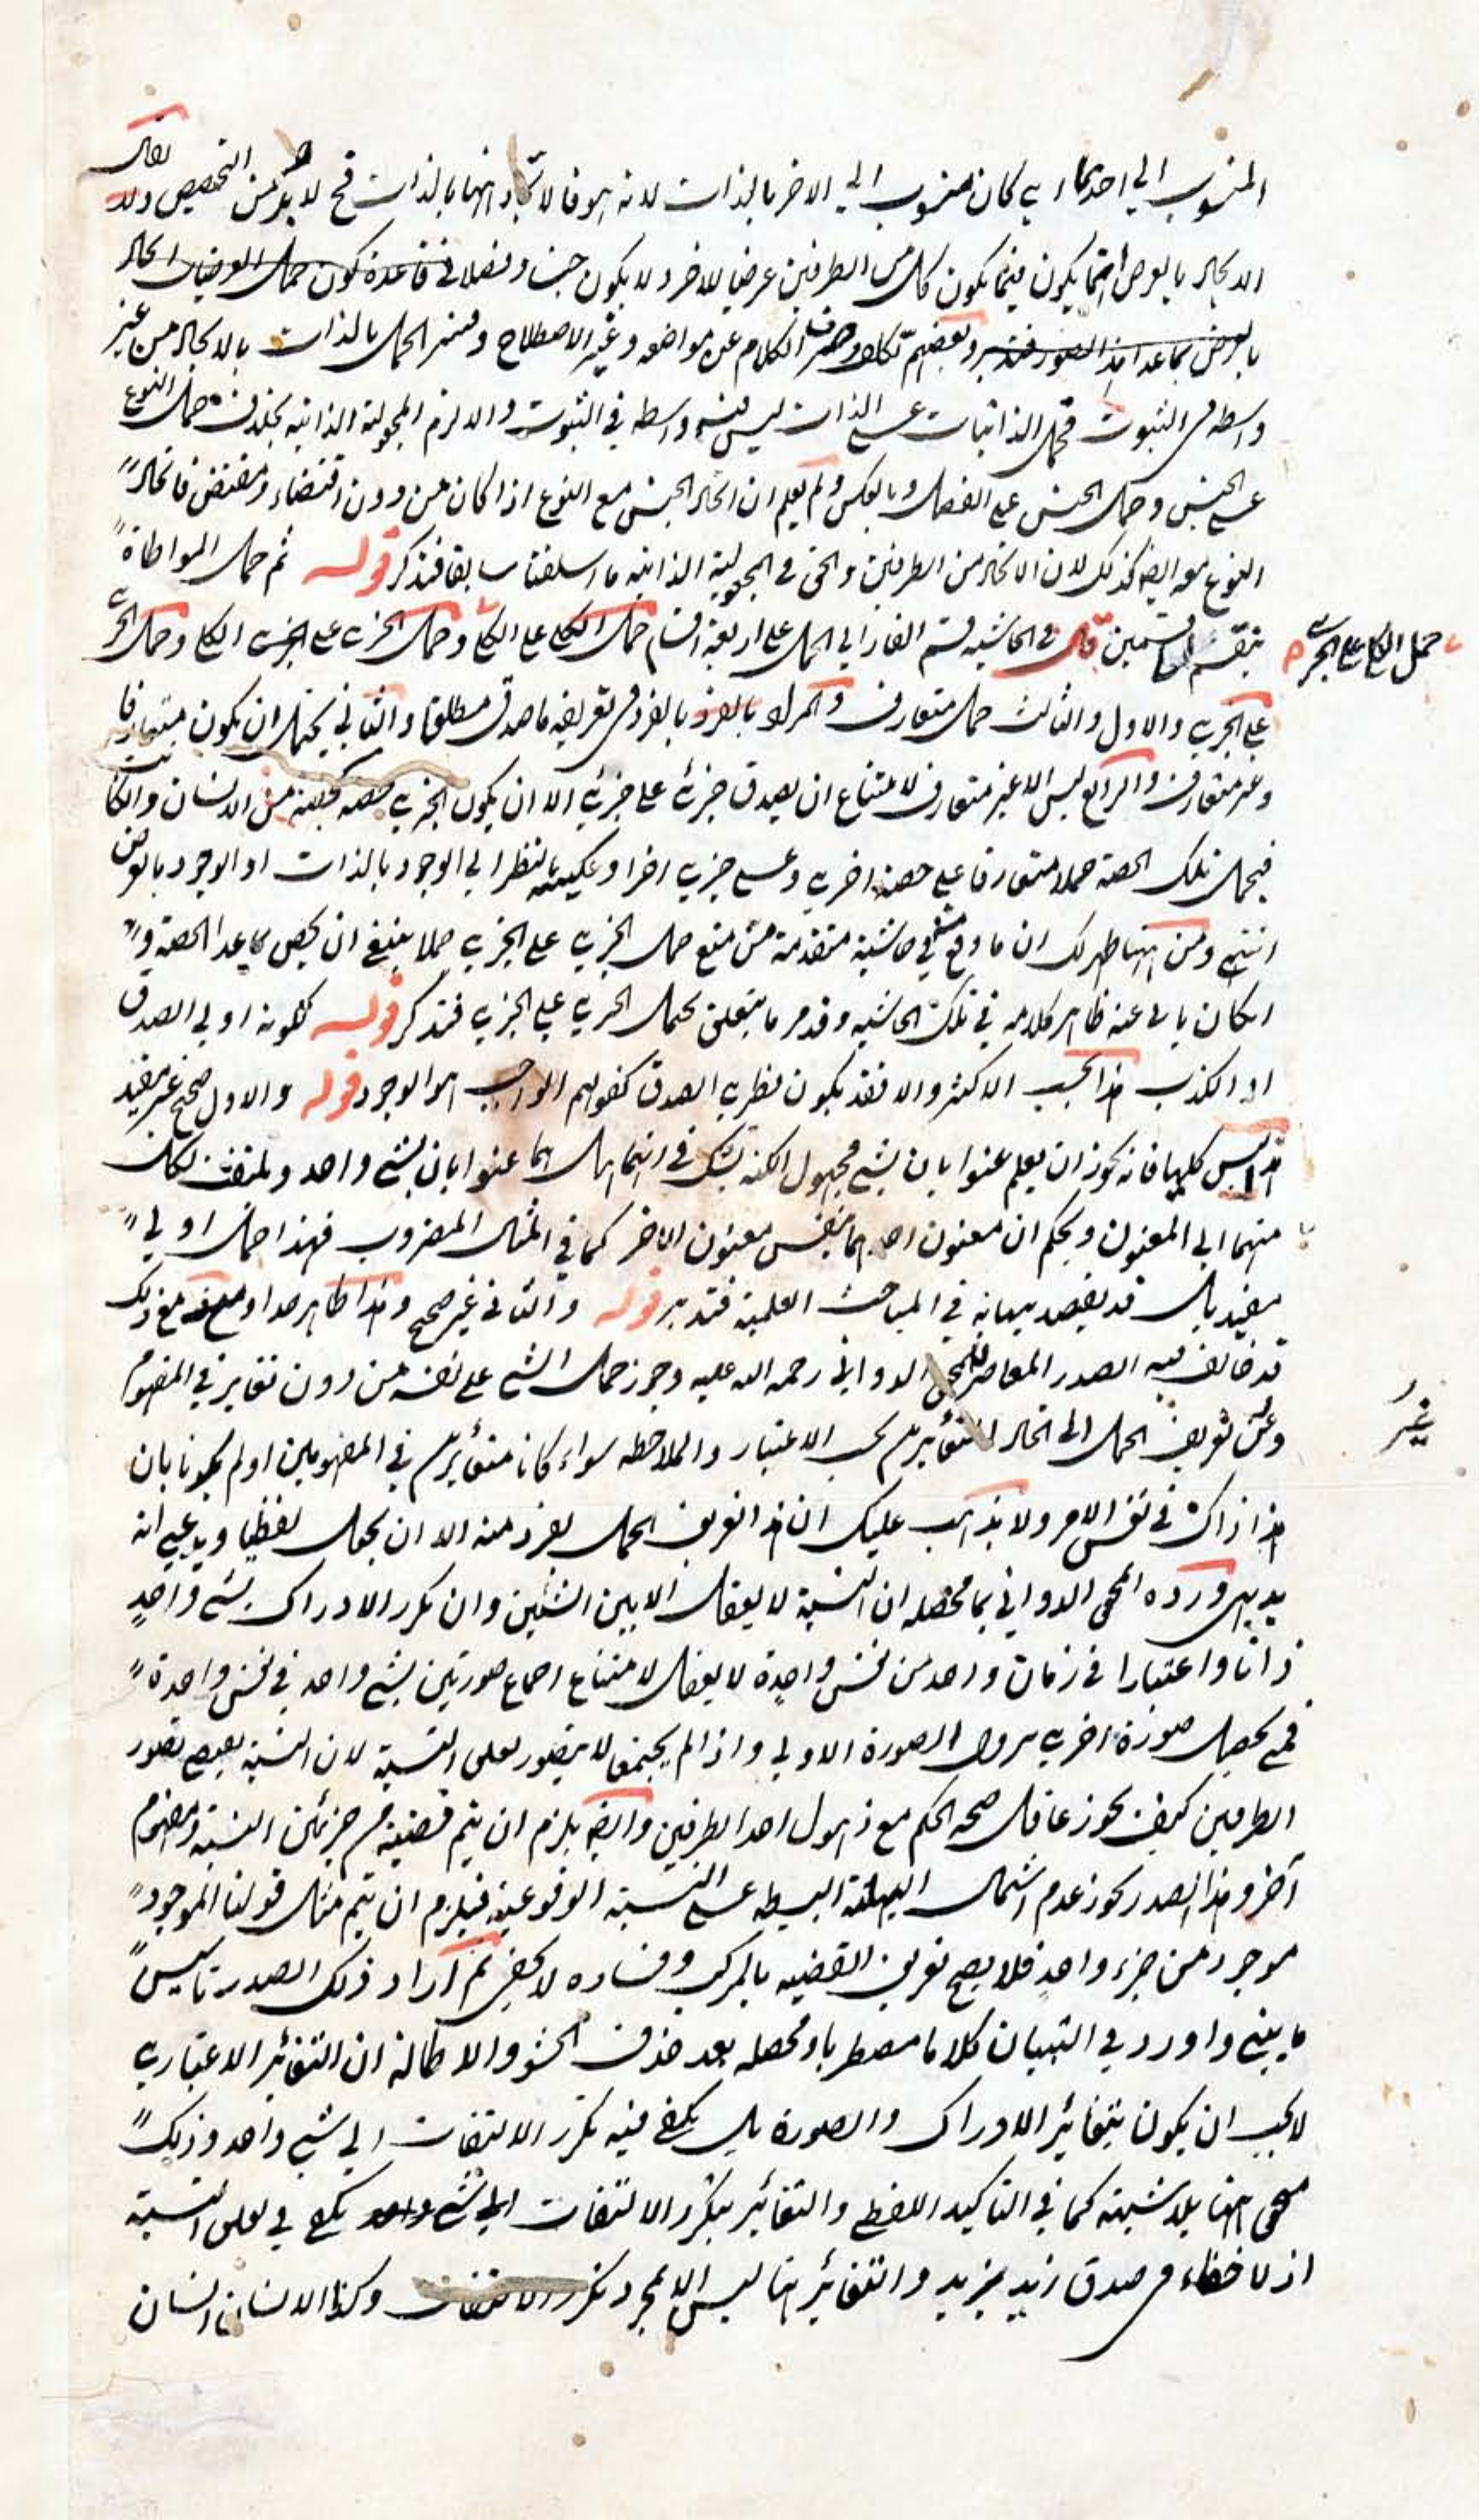 المنسوب الى احدهما اى كان منسوب الى الاخر بالذات لانه هو فالاتحاد انها بالذات فح لا بد من التخصيص ولا يقال
الاتحاد بالعرض انما يكون فيما يكون كل من الطرفين عرضيا للاخر ولا يكون جنسا وفصلا فى قاعدة كون حمل العرضيات اتحاد
بالعرض بما عدا هذا الصور فتدبر وبعضهم تكلف وصرف الكلام عن مواضعه وغير الاصطلاح وفسر الحمل بالذات بالاتحاد من غير
واسطة فى الثبوت فحمل الذاتيات على الذات ليس فيه واسطه فى الثبوت والا لزم المجعولية الذاتيه بخلاف حمل النوع
على الجنس وحمل الجنس على الفصل وبالعكس ولم يعلم ان اتحاد الجنس مع النوع اذا كان من دون اقتضاء ومقتض فاتحاد
النوع معه ايضا كذلك لان الاتحاد من الطرفين والحق فى المجعولية الذاتيه ما اسلفنا سابقا فتذكر قوله ثم حمل المواطاة
ينقسم الى قسمين قال فى الحاشيه قسم الفارابى الحمل على اربعة اقسام حمل الكلى على الكلى وحمل الجزى على الكلى وحمل الجزى
حمل الكلى على الجزى
على الجزى والاول والثالث حمل متعارف والمراد بالفرد فى تعريفه ما صدق مطلقا والثانى يحتمل ان يكون متعارفا
وغير متعارف والرابع ليس الا غير متعارف لامتناع ان يصدق جزئى على جزئى الا ان يكون الجزى حصه كحصة من الانسان والكاتب
فيحمل تلك الحصة حملا متعارفا على حصة اخرى وعلى جزى اخر او عكسه بالنظر الى الوجود بالذات او الوجود بالعرض
انتهى ومن ههنا ظهر لك ان ما وقع منه فى حاشية متقدمة من منع حمل الجزى على الجزى حملا ينبغى ان يخص بما عدا الحصة وان
كان يابى عنه ظاهر كلامه فى تلك الحاشيه وقد مر ما يتعلق بحمل الجزى على الجزى فتذكر قوله ككونه اولى الصدق
او الكذب هذا بحسب الاكثر والا فقد يكون نظرى الصدق كقولهم الواجب هو الوجود قوله والاول صحيح غير مفيد
هذا ليس كليا فانه يجوز ان يعلم عنوانان بشئ مجهول الكنه يشك فى انهما هل هما عنوانان بشئ واحد ويلتفت بكل
منهما الى المعنون ويحكم ان معنون احدهما نفس معنون الاخر كما فى المثال المضروب فهذا حمل اولى
مفيد بل قد يقصد بيانه فى المباحث العلمية فتدبر قوله والثانى غير صحيح وهذا ظاهر جدا ومع ذلك
قد خالف فيه الصدر المعاصر للمحقق الدوانى رحمه الله عليه وجوز حمل الشئ على نفسه من دون تغاير فى المفهوم
غير
وغير تعريف الحمل الى اتحاد المتغايرين بحسب الاعتبار والملاحظه سواء كانا متغايرين فى المفهومين او لم يكونا بان
هذا ذاك فى نفس الامر ولا يذهب عليك ان هذا تعريف الحمل لفرد منه الا ان يجعل لفظيا ويدعى انه
بديهى ورده المحقق الدوانى بما محصله ان النسبة لا يعقل الا بين الشئين وان تكرر الادراك بشئ واحد
ذاتا واعتبارا فى زمان واحد من نفس واحدة لا يعقل لامتناع اجتماع صورتين بشئ واحد فى نفس واحدة
فمع تحصيل صورة اخرى يزول الصورة الاولى واذا لم يجتمعا لا يتصور تعلق النسبة لان النسبة يقتضى تصور
الطرفين كيف يجوز عاقل صحة الحكم مع ذهول احد الطرفين وايضا يلزم ان يتم قضية من جزئين النسبة ومفهوم
آخر وهذا الصدر يجوز عدم اشتمال الهلية البسيطه على النسبة الوقوعية فيلزم ان يتم مثل قولنا الموجود
موجود من جزء واحد فلا يصح تعريف القضيه بالمركب وفساده لا يخفى ثم اراد ذلك الصدر تاسيس
ما بنى واورد فى التبيان كلاما مضطربا ومحصله بعد حذف الحشو والاطالة ان التغائر الاعتبارى
لا يجب ان يكون بتغائر الادراك والصورة بل يكفى فيه تكرر الالتفات الى شئ واحد وذلك
متحقق ههنا بلا شبهة كما فى التاكيد اللفظى والتغائر بتكرر الالتفات الى شئ واحد يكفى فى تعلق النسبة
اذ لا خفاء فى صدق زيد بزيد والتغائر هنا ليس الا بمجرد تكرر الالتفات وكذا الانسان انسان